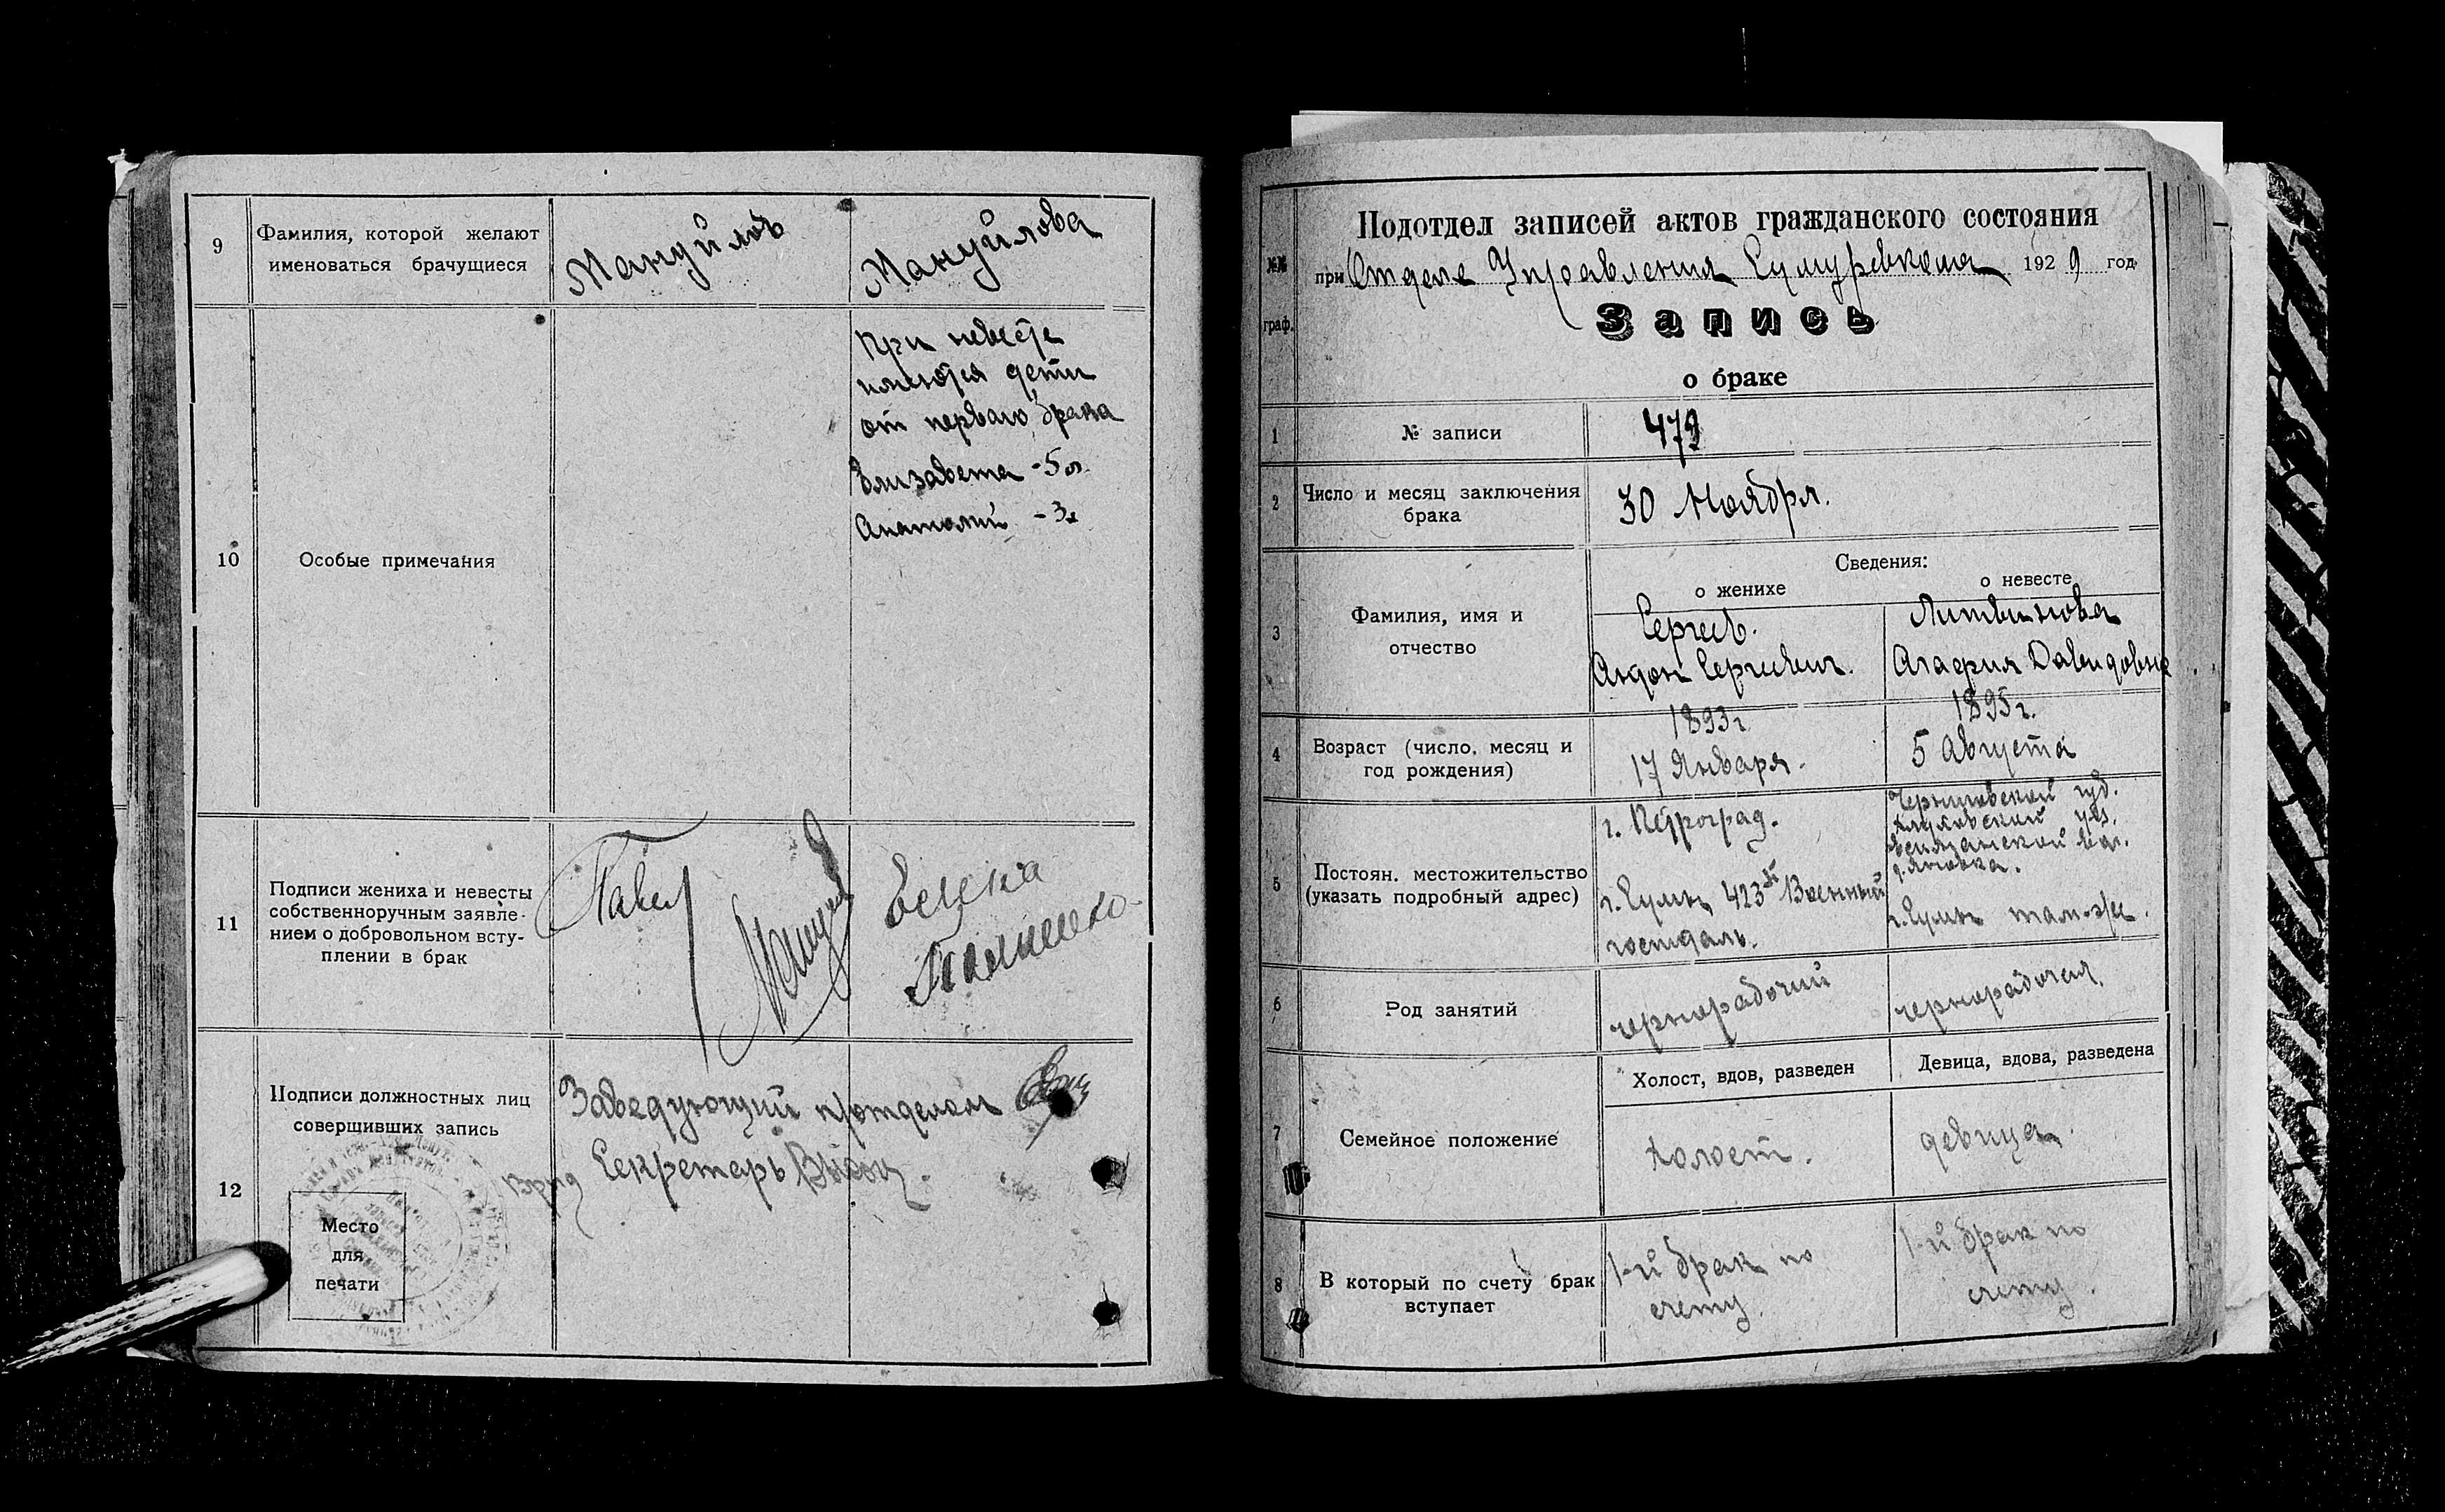 9
Фамилия, которой желают
именоваться брачущиеся
Мануйлов
Мануйлова
10
Особые примечания
При невесте
имеются дети
от первого брака
Елизавета - 5 л.
Анатолий - 3 г.
11
Подписи жениха и невесты
собственноручным заявле-
нием о добровольном всту-
плении в брак
Павел
Елена
12
Подписи должностных лиц
совершивших запись
Место
для
печати
Заведующий п/отделом
Врид Секретарь
№№
граф.
Подотдел записей актов гражданского состояния
при Отделе Управления Сумуревкома 1929 год
Запись
о браке
1
№ записи
479
2
Число и месяц заключения
брака
30 Ноября.
3
Фамилия, имя и
отчество
Сведения:
о женихе
о невесте
Сергеев.
Сергеевич.
Литвинова
Давидовна
4
Возраст (число, месяц и
год рождения)
1893 г.
17 Января.
1895 г.
5 Августа
5
Постоян. местожительство
(указать подробный адрес)
г. Петроград.
г. Сумы, 423й Военный
госпдаль.
Черниговской губ.
Глуховский уез.
вол.
д. Яновка.
г. Сумы там-же.
6
Род занятий
чернорабочий
чернорабочая.
7
Семейное положение
Холост, вдов, разведен
Девица, вдова, разведена
холост.
девица.
8
В который по счету брак
вступает
1-й брак по
счету.
1-й брак по
счету.